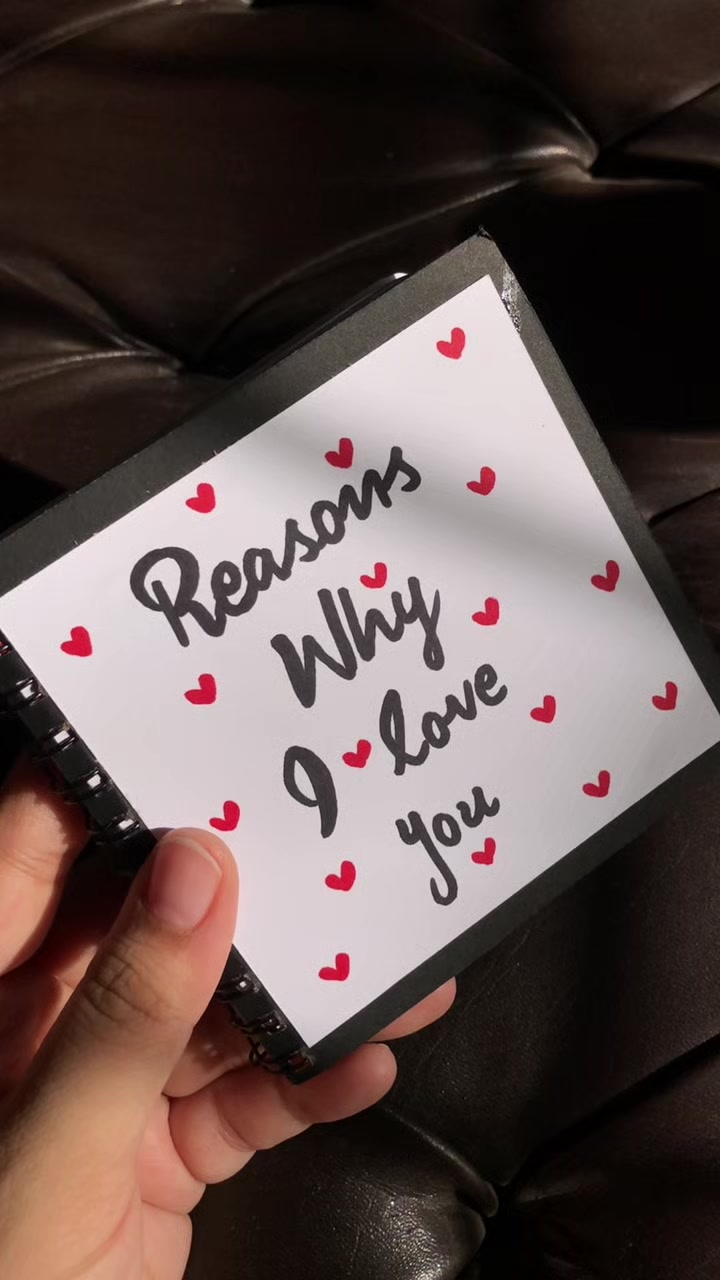 Reasons
Why
I love
you